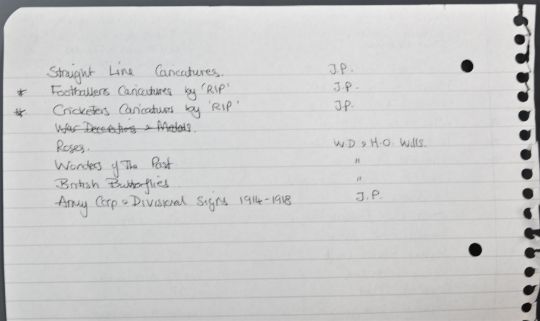 Straight Line Caricatures. J.P.
* Footballers Caricatures by 'RIP' J.P.
* Cricketers Caricatures by 'RIP' J.P.
War Decorations & Medals.
Roses. W.D & H.O. Wills.
Wonders of The Past "
British Butterflies "
Army Corp & Divisional Signs 1914-1918 J.P.